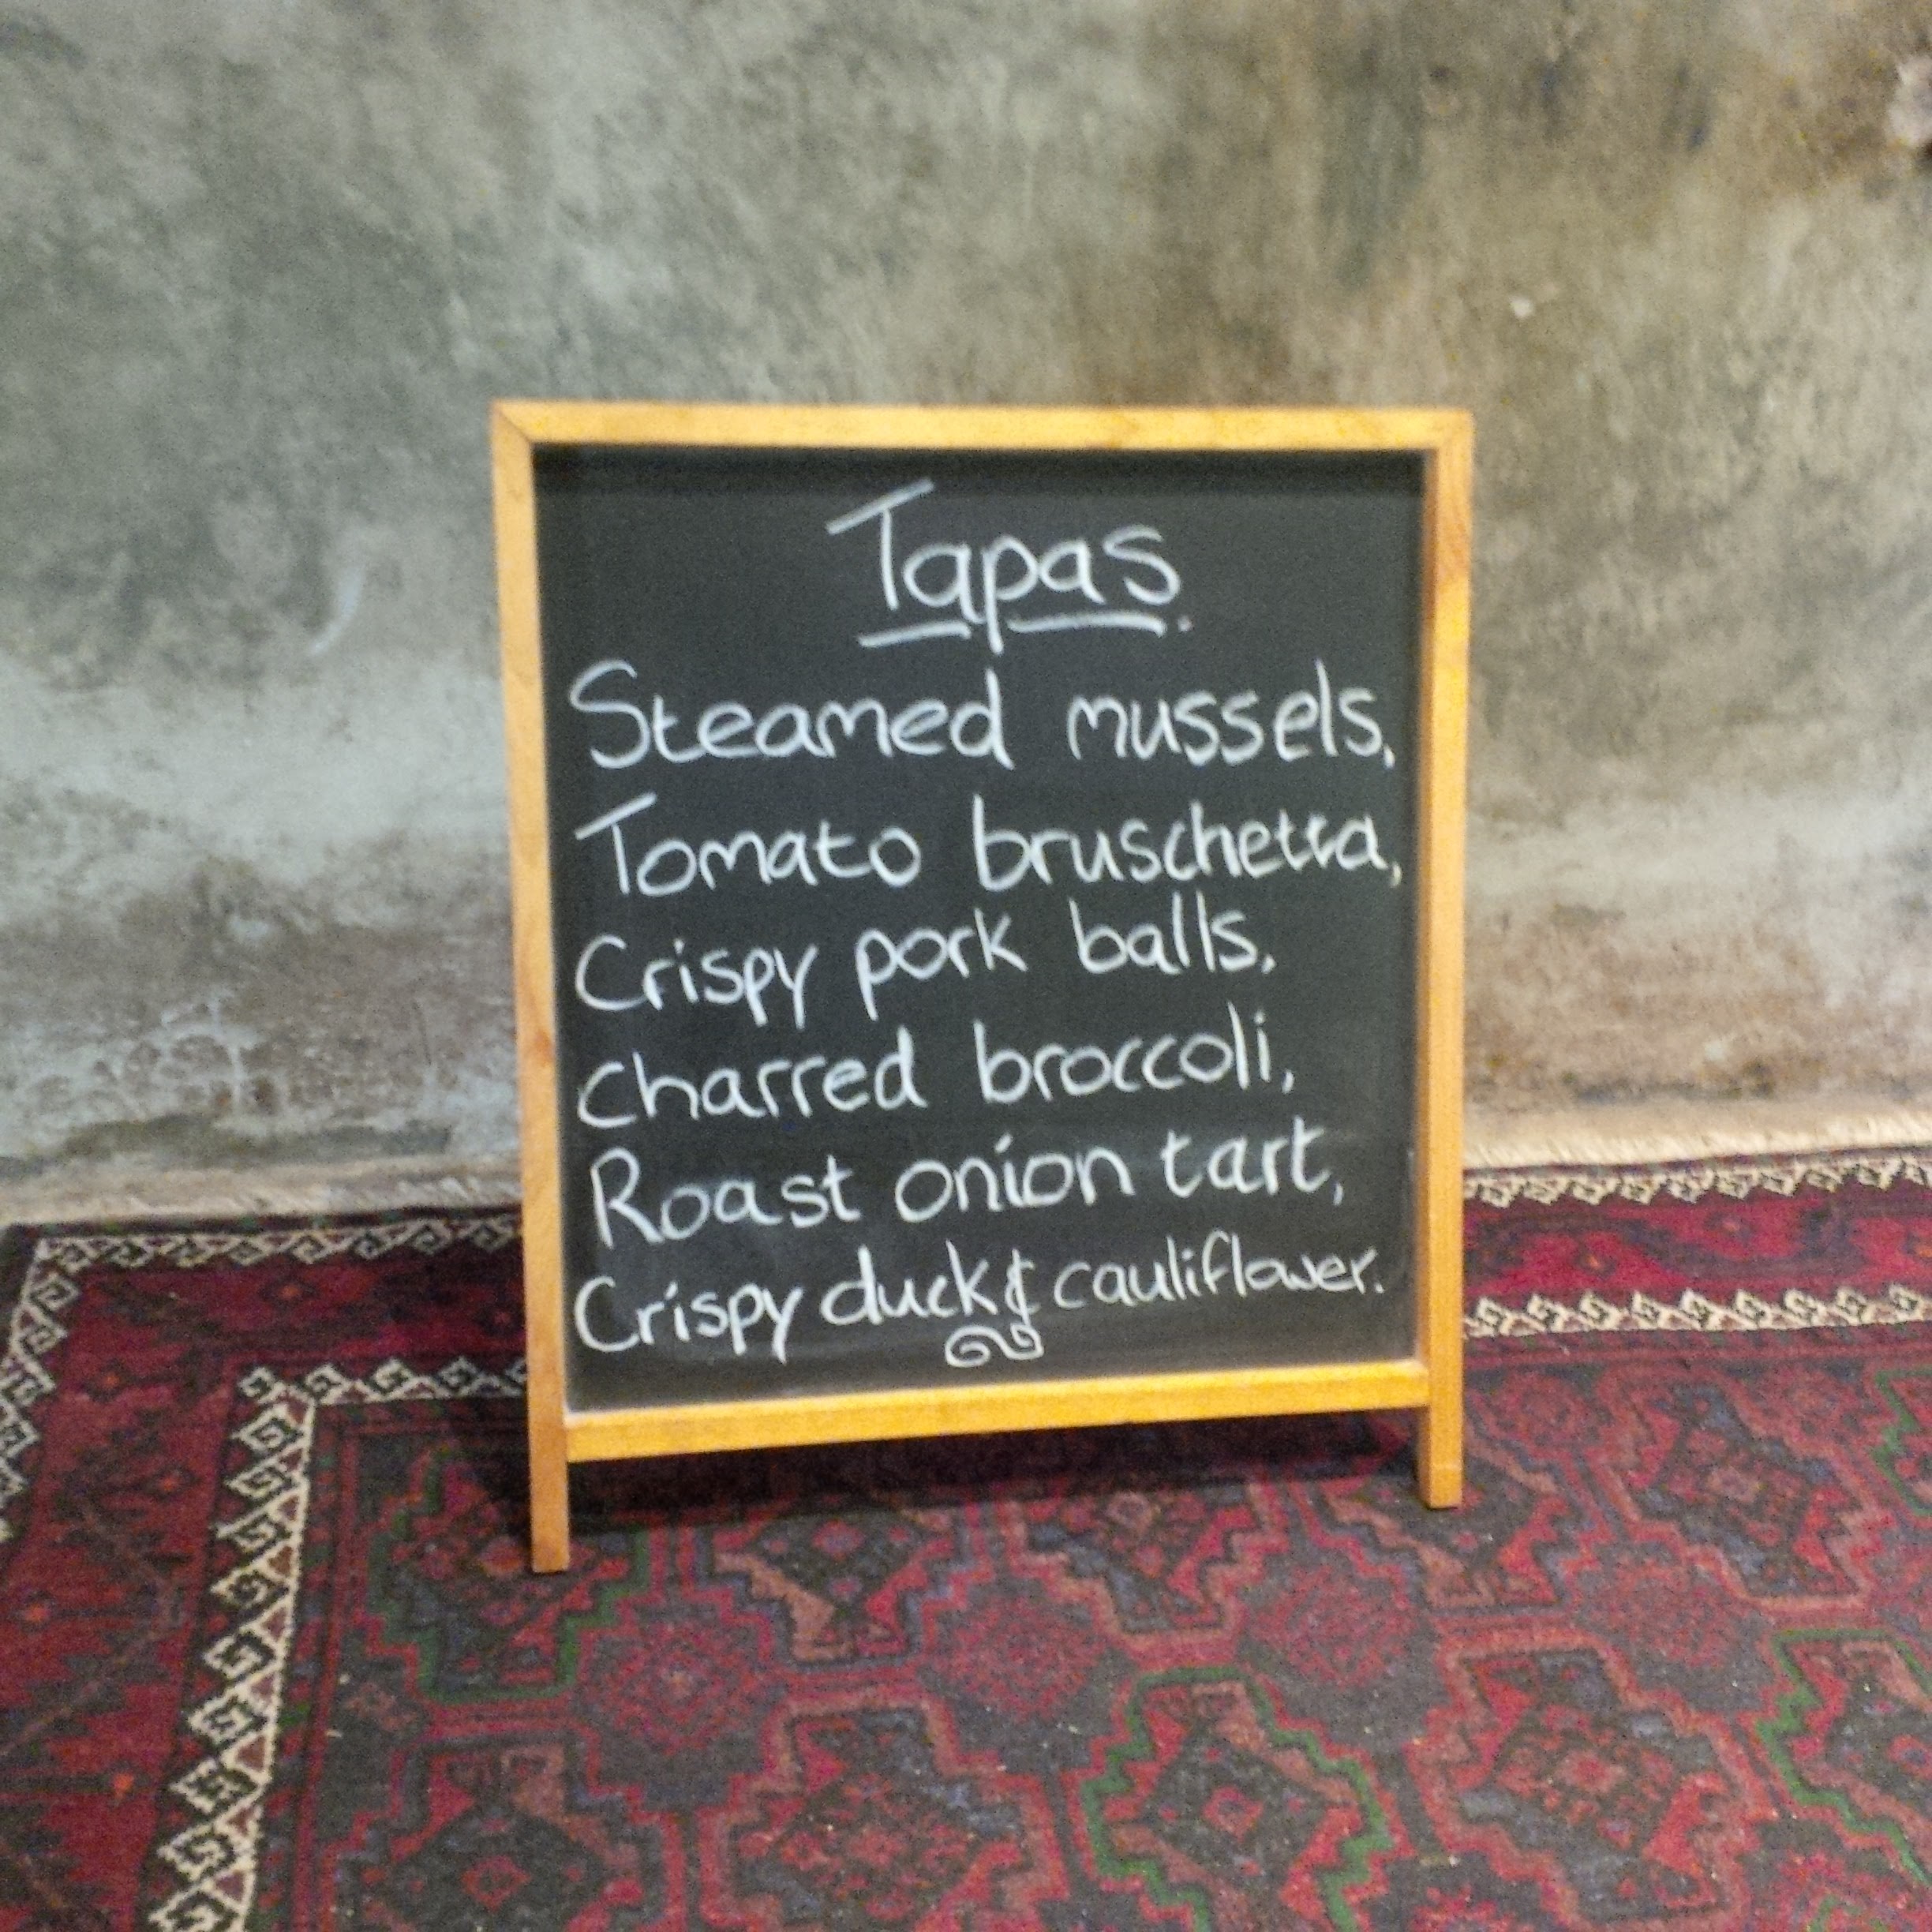 Tapas.
Steamed mussels,
Tomato bruschetta,
Crispy pork balls,
charred broccoli,
Roast onion tart,
Crispy duck & cauliflower.